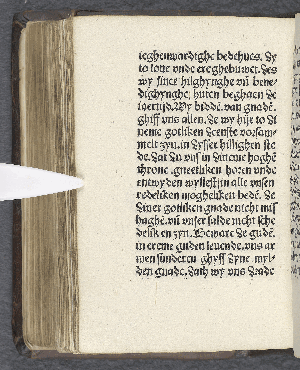 ieghenwardighe bedehues. Dy
to loue vnde ere ghebuwet. Des
wy sines hilghynghe vñ bene⸗
dighynghe, buten beghaen de
iaertijd. Wy bidde. van gnadẽ.
ghiff vns allen. de wy hijr to di
neme gotliken deenste vorsam⸗
melt zyn. in dysser hillighen ste
de. dat du vns in dineme hoghẽ
throne. gneetliken horen vnde
entwyden wyllest jn alle vnsen
redeliken moghelikẽ bedẽ. de
diner gotliken gnade nicht mis
haghẽ. vñ vnser salde nicht sche
delik en zyn. Beware de gudẽ.
in ereme guden leuende. vns ar
men sunderen ghyff dyne myl⸗
den gnade. dath wy vns drade